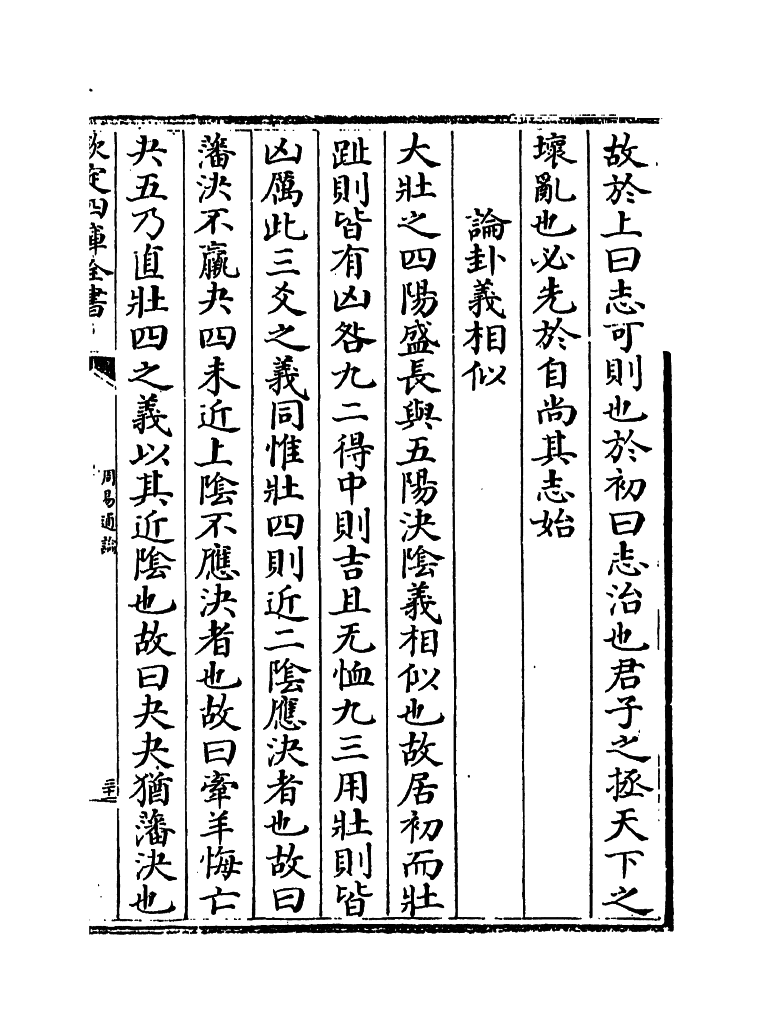 故於上曰志可則也於初曰志治也君子之拯天下之
壞亂也必先於自尚其志始
論卦義相似
大壯之四陽盛長與五陽決陰義相似也故居初而壯
趾則皆有凶咎九二得中則吉且无恤九三用壯則皆
凶厲此三爻之義同惟壯四則近二陰應決者也故曰
藩決不羸夬四未近上陰不應決者也故曰牽羊悔亡
夬五乃直壯四之義以其近陰也故曰夬夬猶藩決也
欽定四庫全書
周易通論